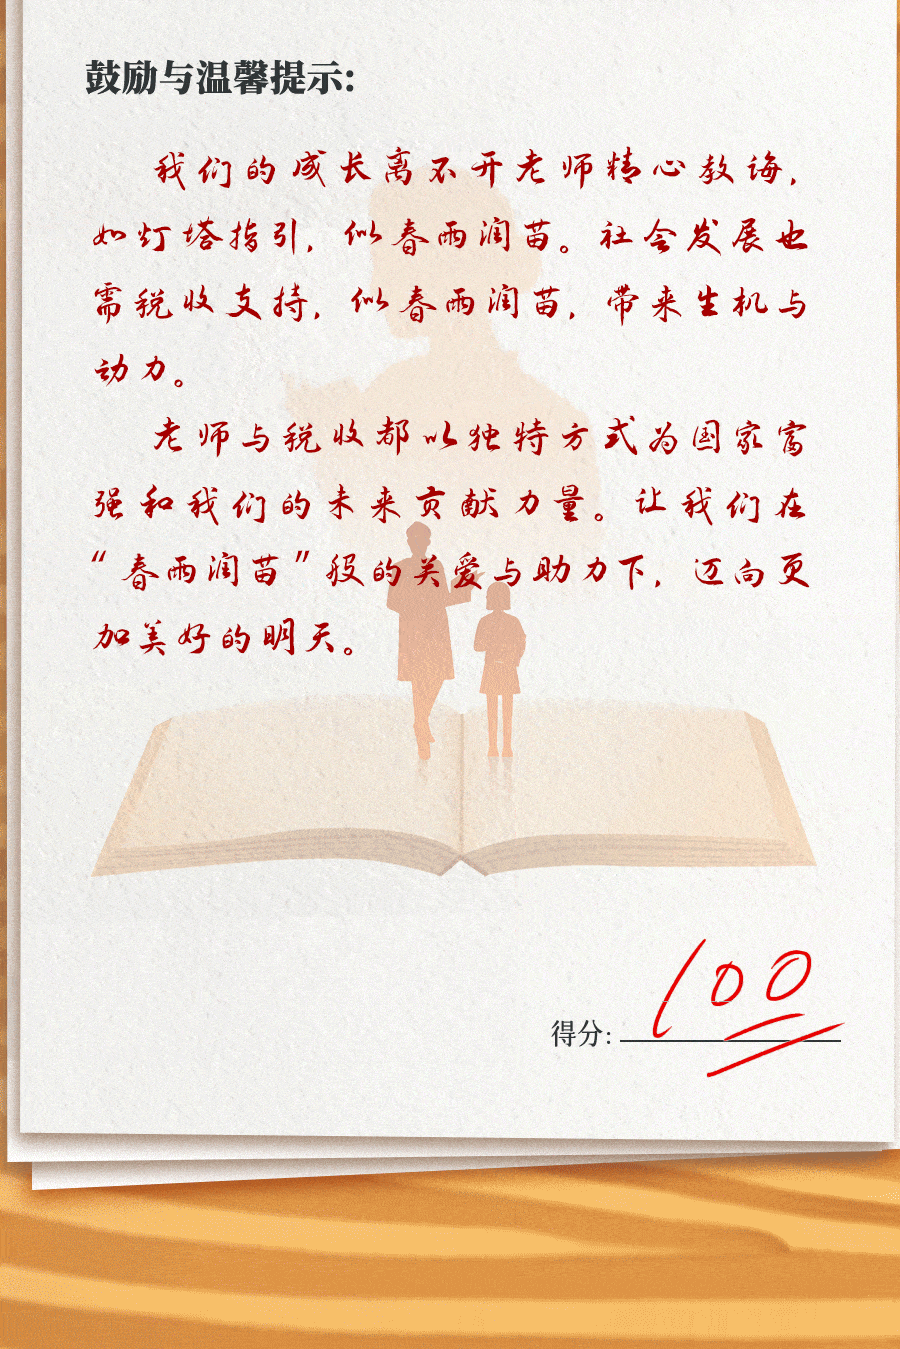 鼓励与温馨提示:
我们的成长离不开老师精心教诲,
如灯塔指引,似春雨润苗。社会发展也
需税收支持,似春雨润苗,带来生机与
动力。
老师与税收都以独特方式为国家富
强和我们的未来贡献力量。让我们在
“春雨润苗”般的关爱与助力下,迈向更
加美好的明天。
得分: 100